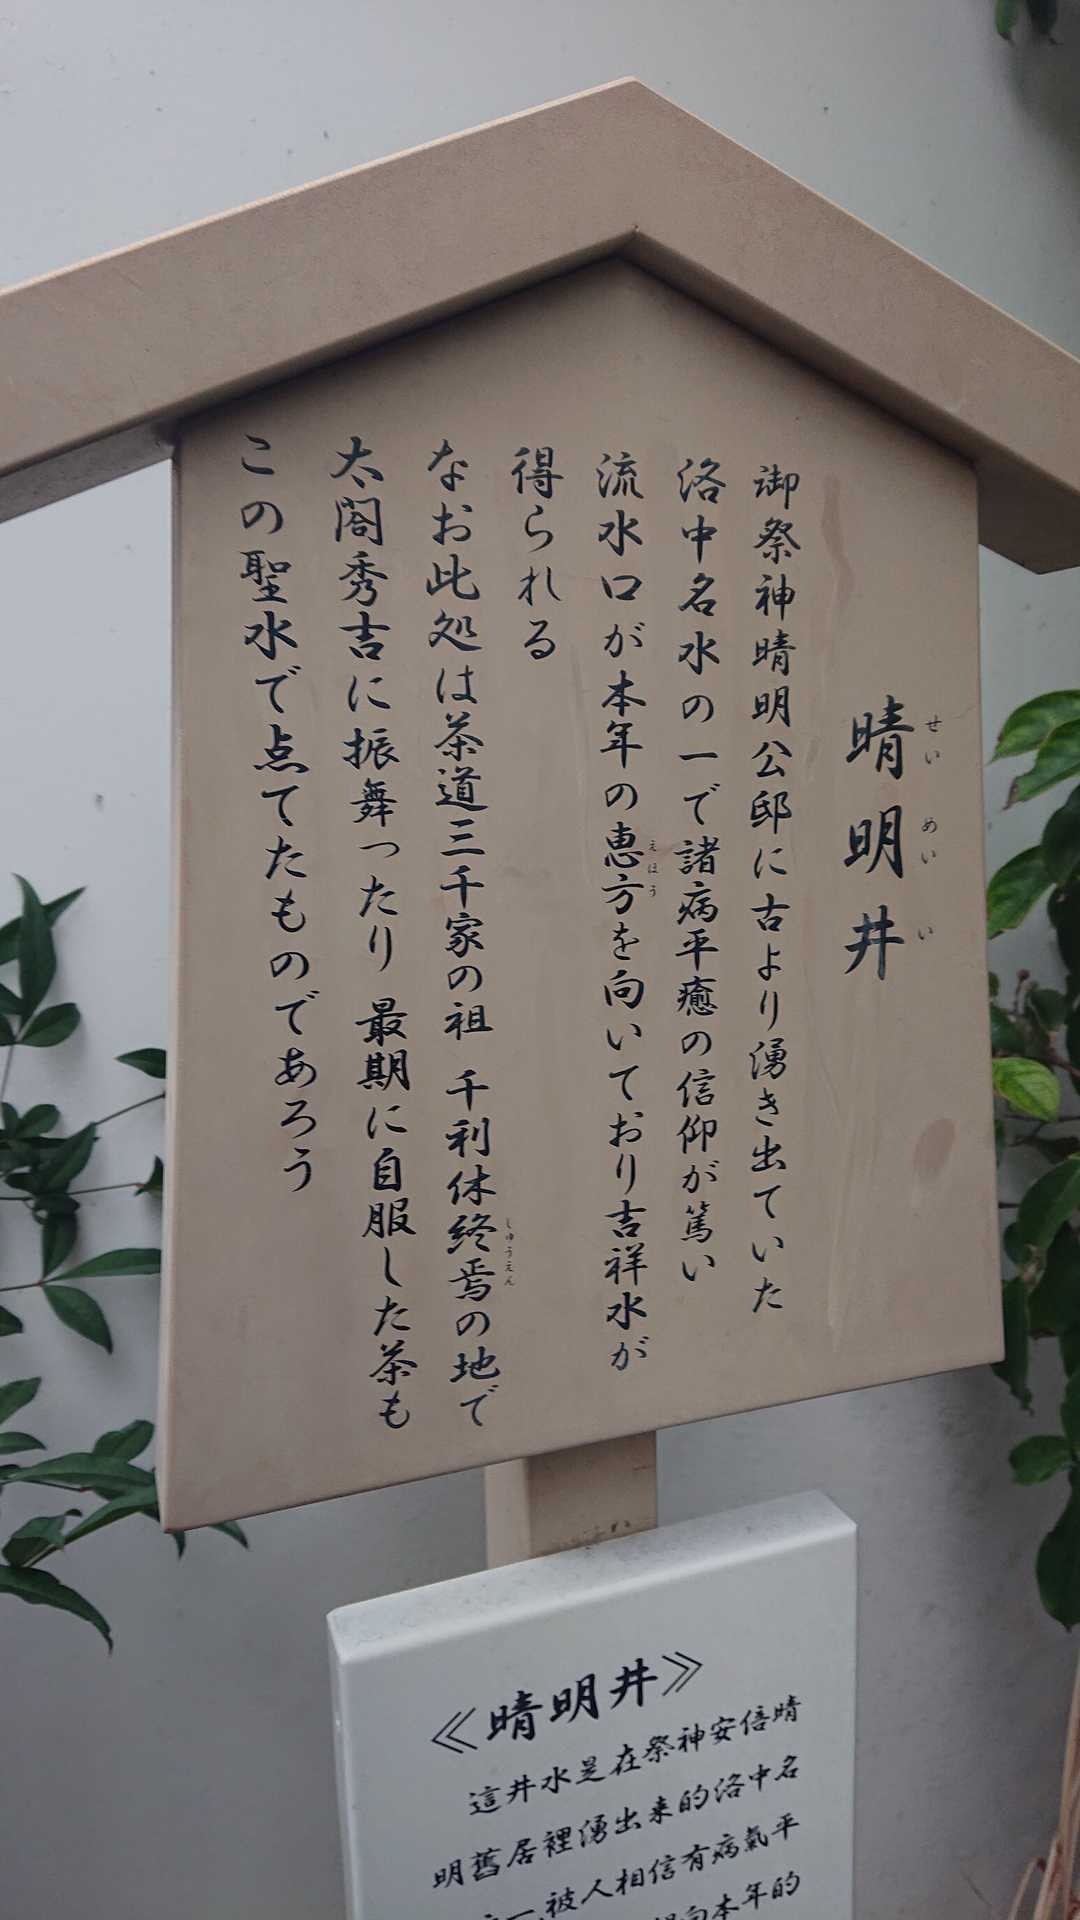 晴明井
せいめいい
御祭神晴明公邸に古より湧き出ていた
洛中名水の一で諸病平癒の信仰が篤い
流水口が本年の恵方を向いており吉祥水が
えほう
得られる
なお此処は茶道三千家の祖 千利休終焉の地で
しゅうえん
太閤秀吉に振舞ったり 最期に自服した茶も
この聖水で点てたものであろう
≪晴明井≫
這井水是在祭神安倍晴
明舊居裡湧出来的洛中名
一、被人相信有病氣平
向本年的